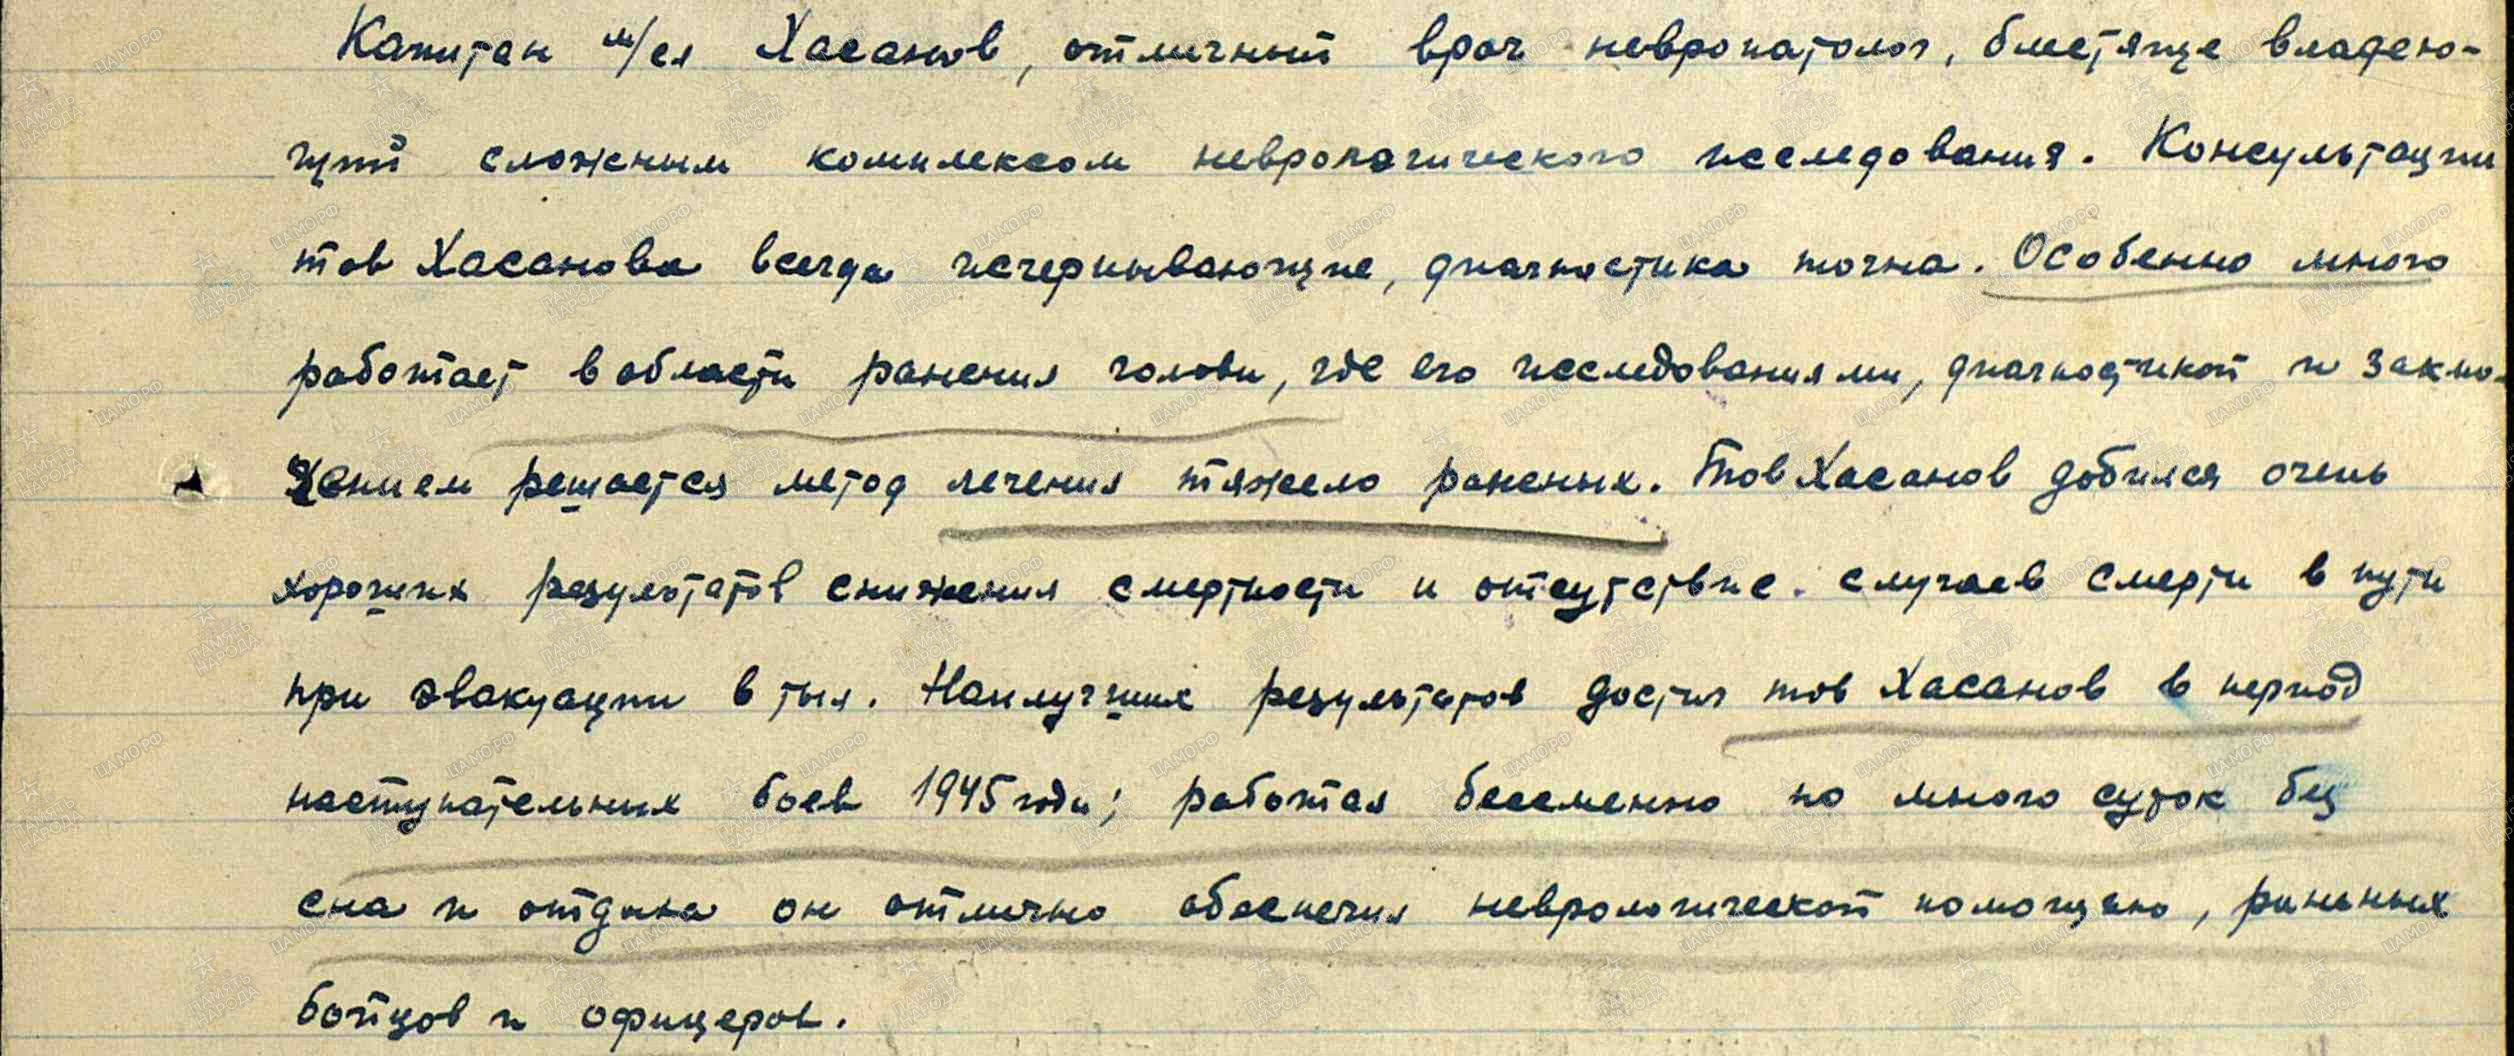 Капитан м/сл Хасанов, отличный врач невропатолог, блестяще владею-
щий сложным комплексом неврологического исследования. Консультации
тов Хасанова всегда исчерпывающие, диагностика точна. Особенно много
работает в области ранения головы, где его исследованиями, диагностикой и заклю-
чением решается метод лечения тяжело раненых. Тов Хасанов добился очень
хороших результатов снижения смертности и отсутствие случаев смерти в пути
при эвакуации в тыл. Наилучших результатов достиг тов Хасанов в период
наступательных боев 1945 года; работая бессменно по много суток без
сна и отдыха он отлично обеспечил неврологической помощью, раненых
бойцов и офицеров.